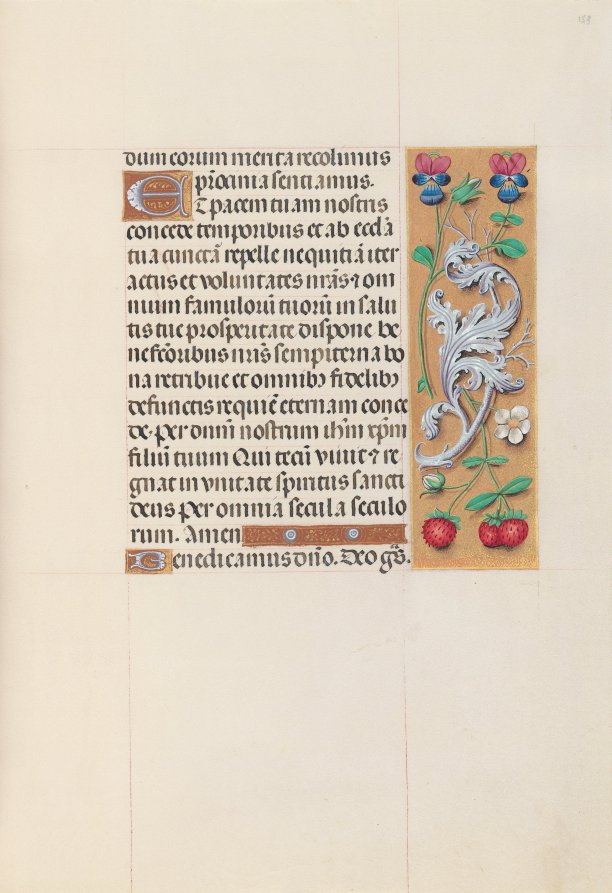 158
dum eorum merita recolimus
p̄rocinia senciamus.
Et pacem tuam nostris
concede temporibus et ab eccl̄ā
tua cunctā repelle nequitiā iter
actus et voluntates nr̄as ⁊ om
nium famulorū tuorū in salu
tis tue prosperitate dispone be
nefc̄oribus nr̄is sempiterna bo
na retribue et omnibꝫ fidelibꝫ
defunctis requiē eternam conce
de. Per dn̄m nostrum ihm̄ xp̄m
filiū tuum Qui tecū vivit ⁊ re
gnat in vnitate spiritus sancti
deus per omnia secula seculo
rum. Amen
Benedicamus dn̄o. Deo gr̄s.